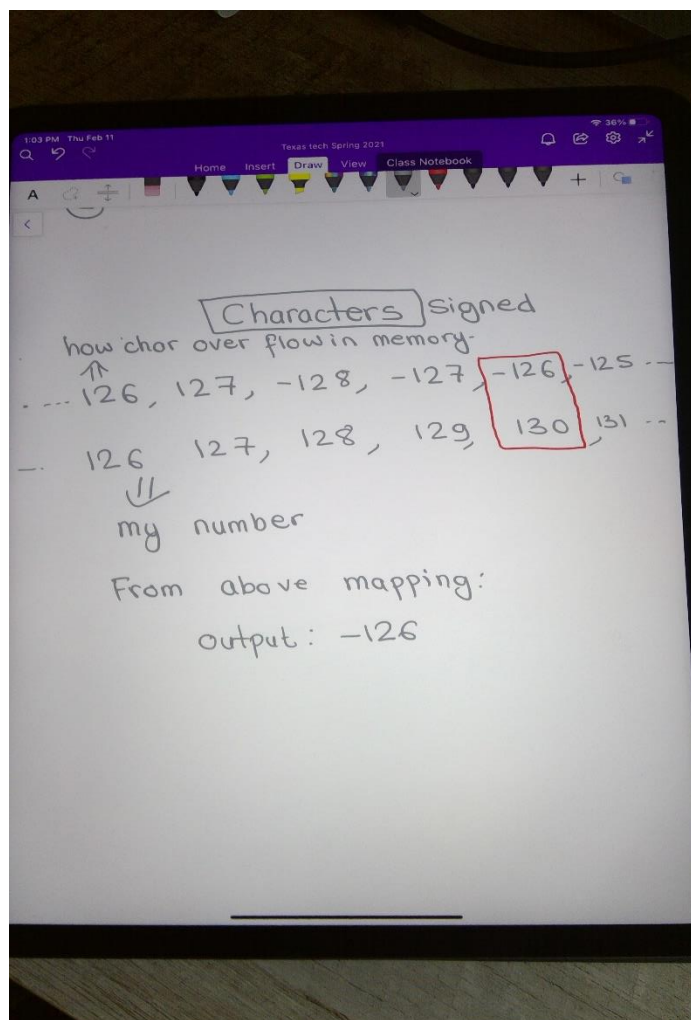 1:03 PM Thu Feb 11
36%
Texas tech Spring 2021
Home Insert Draw View Class Notebook
A
Characters signed
how char over flow in memory.
.... 126, 127, -128, -127, -126, -125 ...
... 126 127, 128, 129, 130, 131 ..
my number
From above mapping:
output: -126